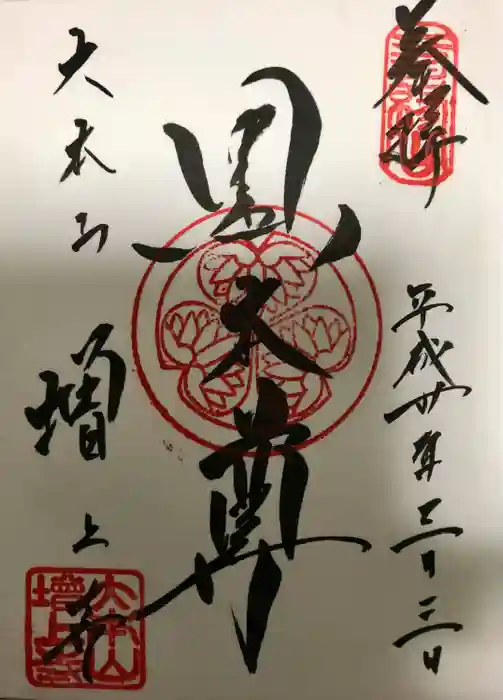 奉拝
平成卅年三月三日
黒本尊
大本山
増上寺
大本山
増上寺